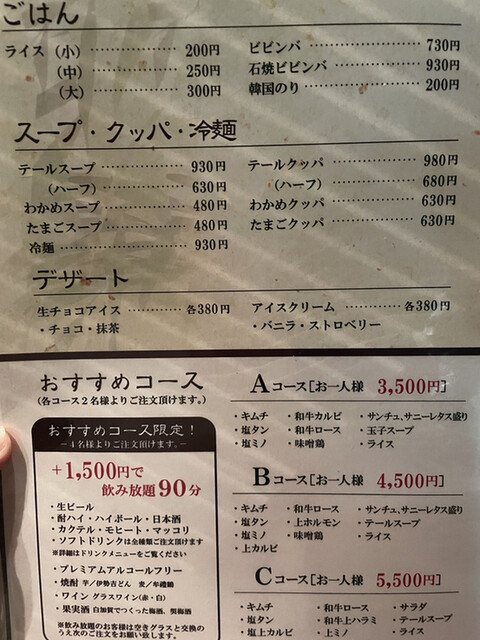 ごはん
ライス（小） 200円
（中） 250円
（大） 300円
ビビンバ 730円
石焼ビビンバ 930円
韓国のり 200円
スープ・クッパ・冷麺
テールスープ 930円
（ハーフ） 630円
わかめスープ 480円
たまごスープ 480円
冷麺 930円
テールクッパ 980円
（ハーフ） 680円
わかめクッパ 630円
たまごクッパ 630円
デザート
生チョコアイス 各380円
・チョコ・抹茶
アイスクリーム 各380円
・バニラ・ストロベリー
おすすめコース
（各コース２名様よりご注文頂けます。）
おすすめコース限定！
－４名様よりご注文頂けます。－
+1,500円で
飲み放題90分
・生ビール
・酎ハイ・ハイボール・日本酒
・カクテル・モヒート・マッコリ
・ソフトドリンクは全種類ご注文頂けます
※詳細はドリンクメニューをご覧ください
・プレミアムアルコールフリー
・焼酎 芋／伊勢吉どん 麦／牟禮鶴
・ワイン グラスワイン（赤・白）
・果実酒 白加賀でつくった梅酒、
※飲み放題のお客様は空きグラスと交換の
うえ次のご注文をお願い致します。
Aコース［お一人様 3,500円］
・キムチ ・和牛カルビ ・サンチュ、サニーレタス盛り
・塩タン ・和牛ロース ・玉子スープ
・塩ミノ ・味噌鶏 ・ライス
Bコース［お一人様 4,500円］
・キムチ ・和牛ロース ・サンチュ、サニーレタス盛り
・塩タン ・上ホルモン ・テールスープ
・塩ミノ ・味噌鶏 ・ライス
・上カルビ
Cコース［お一人様 5,500円］
・キムチ ・和牛ロース ・サラダ
・塩タン ・和牛上ハラミ ・テールスープ
・塩上カルビ ・上ミノ ・ライス